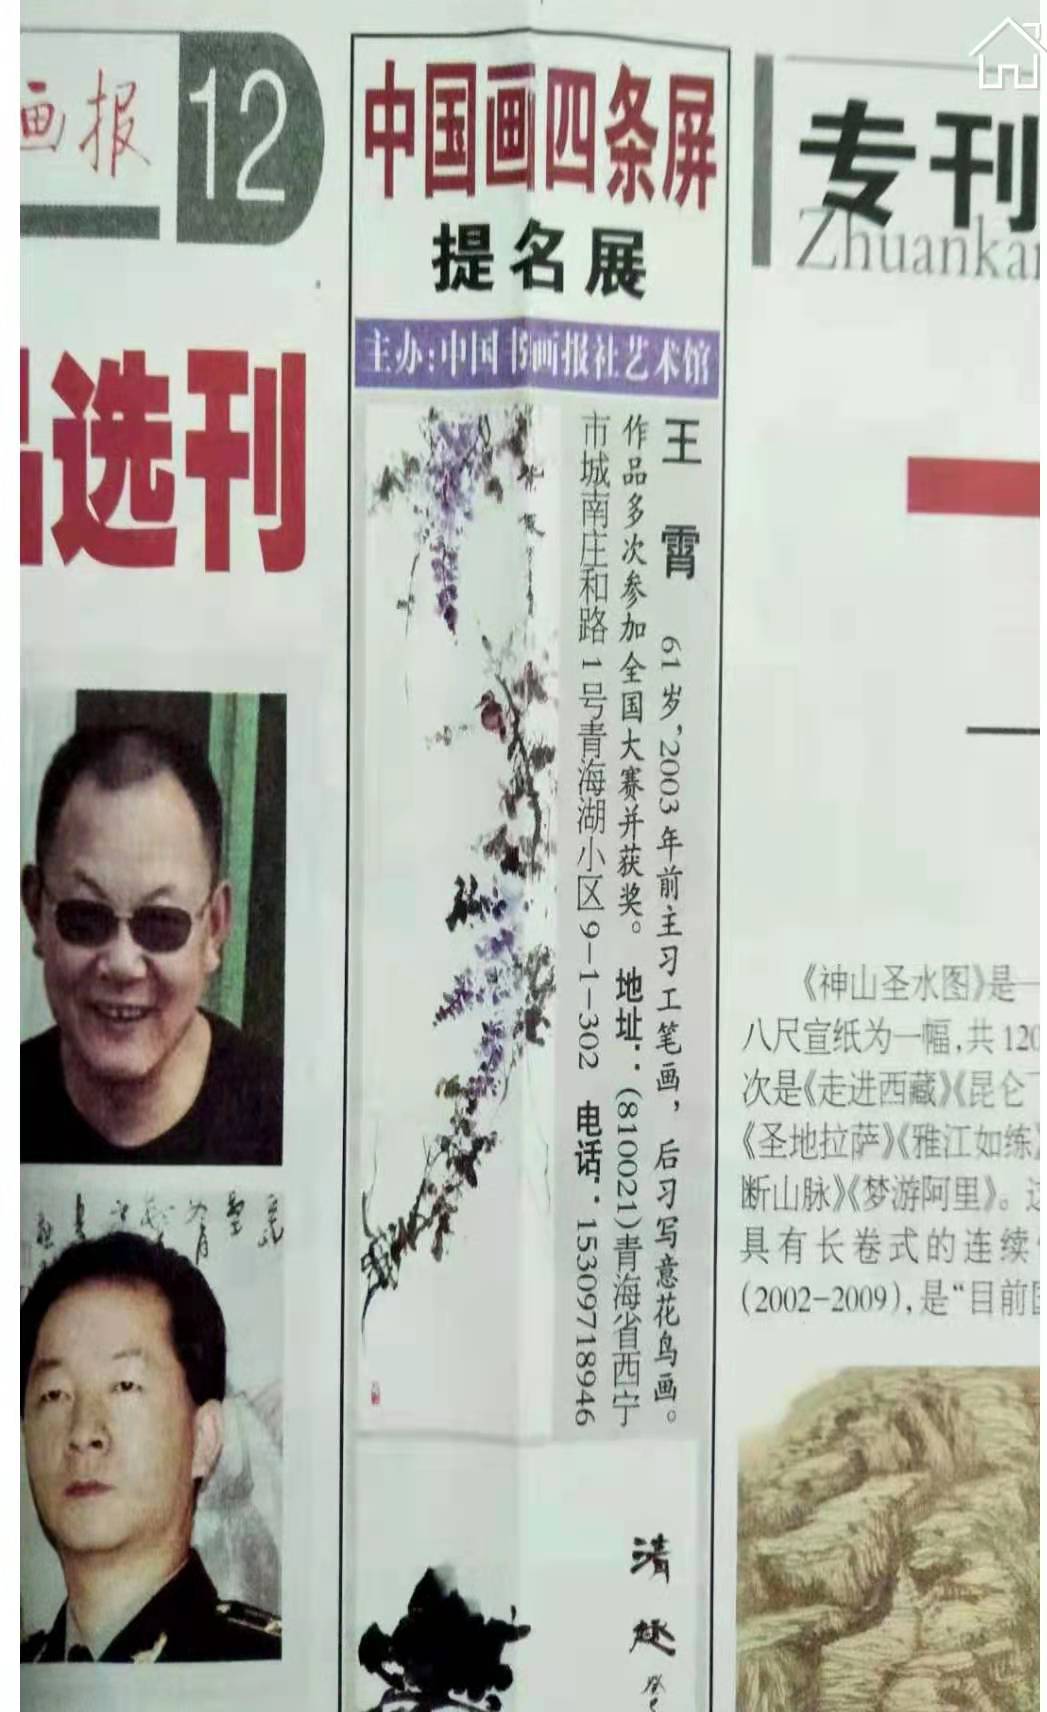 画报
12
品选刊
中国画四条屏
提名展
主办:中国书画报社艺术馆
王霄 61岁,2003年前主习工笔画，后习写意花鸟画。
作品多次参加全国大赛并获奖。 地址：(810021)青海省西宁
市城南庄和路1号青海湖小区9-1-302 电话：15309718946
紫
清趣
专刊
Zhuankan
《神山圣水图》是一
八尺宣纸为一幅,共120
次是《走进西藏》《昆仑
《圣地拉萨》《雅江如练》
断山脉》《梦游阿里》。这
具有长卷式的连续
(2002-2009),是“目前国